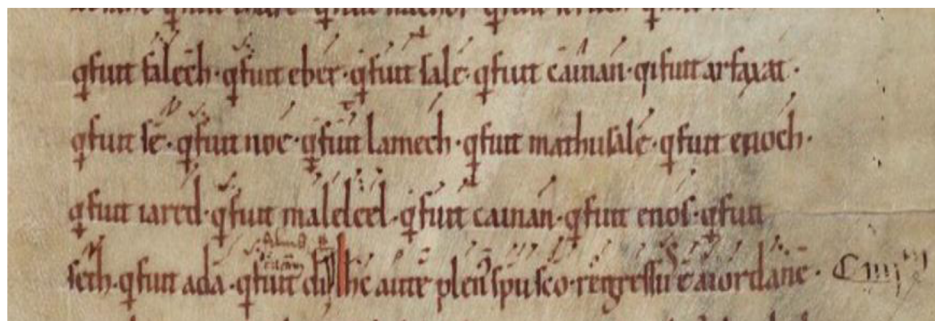 q̄ fuit falech · q̄ fuit eber · q̄ fuit salē · q̄ fuit cainan · qi fuit arfaxat ·
q̄ fuit sē · q̄ fuit noe · q̄ fuit lamech · q̄ fuit mathusalē · q̄ fuit enoch ·
q̄ fuit iared · q̄ fuit maleleel · q̄ fuit cainan · q̄ fuit enos · q̄ fuit
seth · q̄ fuit adā · q̄ fuit di Ihc autē plen᷒ spū sc̄o · regressus ē a iordane ·